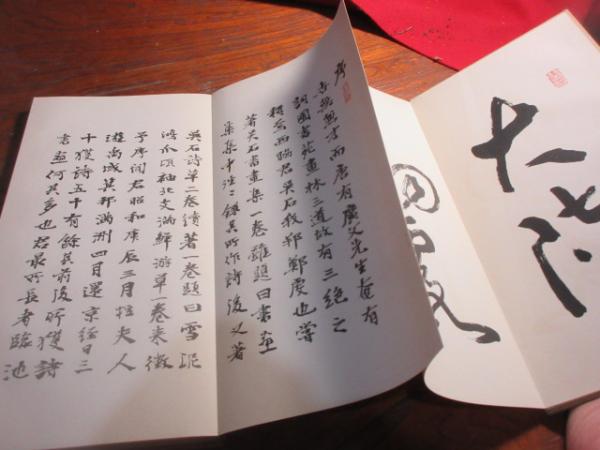 序
古無其才而唐有廣文先生有
詞園書苑畫林三道故有三絕之
稱吾西端君吳石我邦鄭虔也嘗
著吳石書畫集一卷雖題曰書畫
集集中往々錄其所作詩後又著
吳石詩草二卷續著一卷題曰雪泥
鴻爪頃袖北支滿鮮游草一卷來徵
予序聞君昭和庚辰三月拉夫人
遊禹域箕邦滿洲四月還京經日三
十獲詩五十有餘其前後所獲詩
書畫何其多也君最所長者臨池